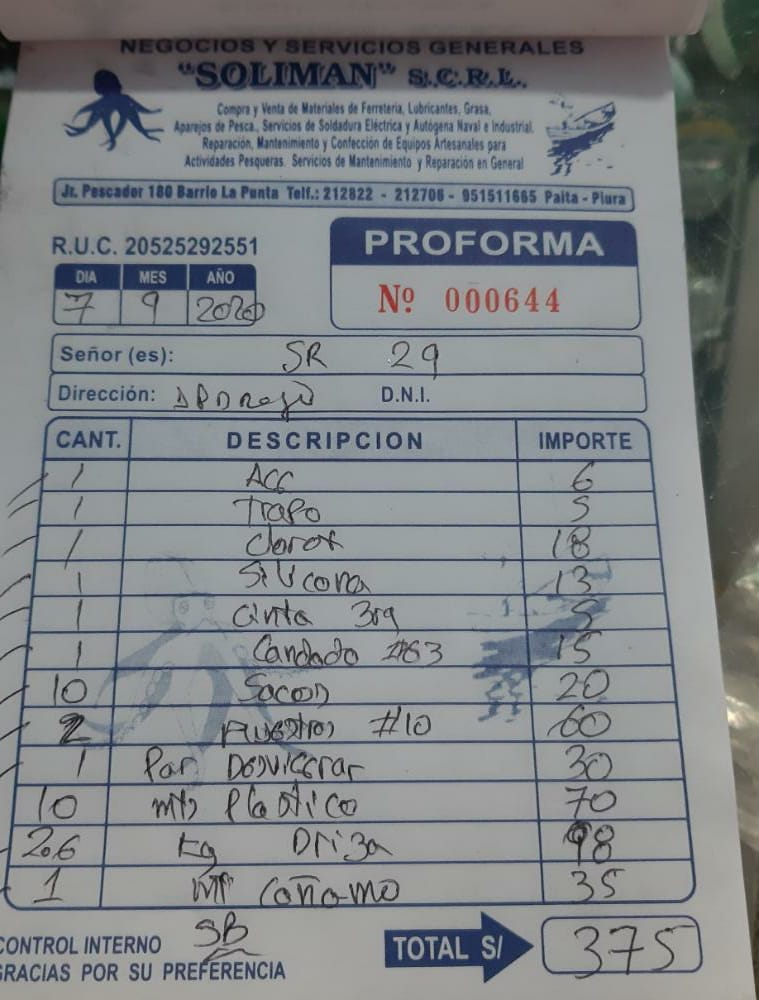 NEGOCIOS Y SERVICIOS GENERALES
"SOLIMAN" S.C.R.L.
Compra y Venta de Materiales de Ferreteria, Lubricantes, Grasa,
Aparejos de Pesca, Servicios de Soldadura Eléctrica y Autógena Naval e Industrial.
Reparación, Mantenimiento y Confección de Equipos Artesanales para
Actividades Pesqueras. Servicios de Mantenimiento y Reparación en General
Jr. Pescador 180 Barrio La Punta Telf.: 212822 - 212706 - 951511665 Paita - Piura
R.U.C. 20525292551
PROFORMA
DIA MES AÑO
7 9 2020
Nº 000644
Señor (es): SR 29
Dirección: D.N.I.
CANT. DESCRIPCION IMPORTE
1 ACG 6
1 Trapo 5
1 Clorox 18
1 Silicona 13
1 Cinta 3rg 5
1 Candado #63 15
10 Sacos 20
2 #10 60
1 Par Desviscrar 30
10 mts Plastico 70
2.6 Kg Driza 98
1 Cañamo 35
CONTROL INTERNO SB
GRACIAS POR SU PREFERENCIA
TOTAL S/ 375